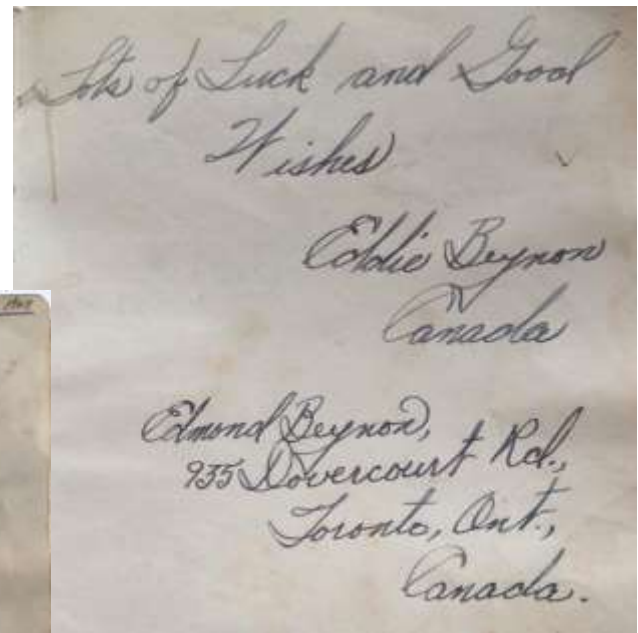 Lots of Luck and Good
Wishes
Eddie Beynon
Canada
Edmond Beynon,
935 Dovercourt Rd.,
Toronto, Ont.,
Canada.